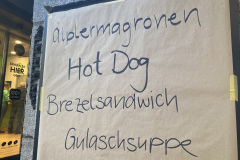 Älplermagronen
Hot Dog
Brezelsandwich
Gulaschsuppe
HIER